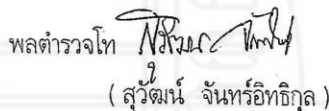 พลตำรวจโท
( สุวัฒน์ จันทร์อิทธิกุล )